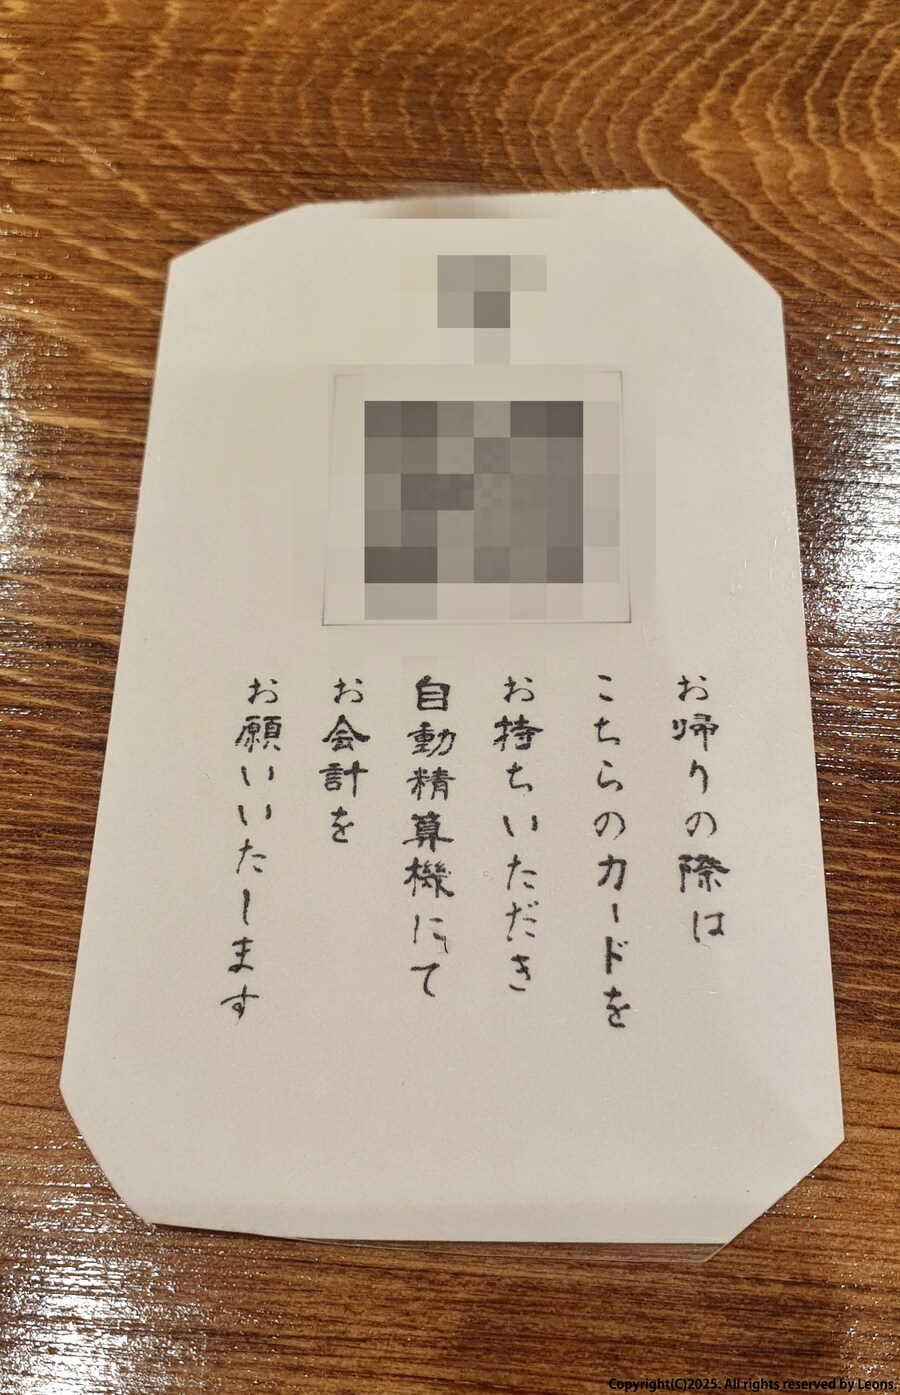 お帰りの際は
こちらのカードを
お持ちいただき
自動精算機にて
お会計を
お願いいたします
Copyright(C)2025. All rights reserved by Leons.